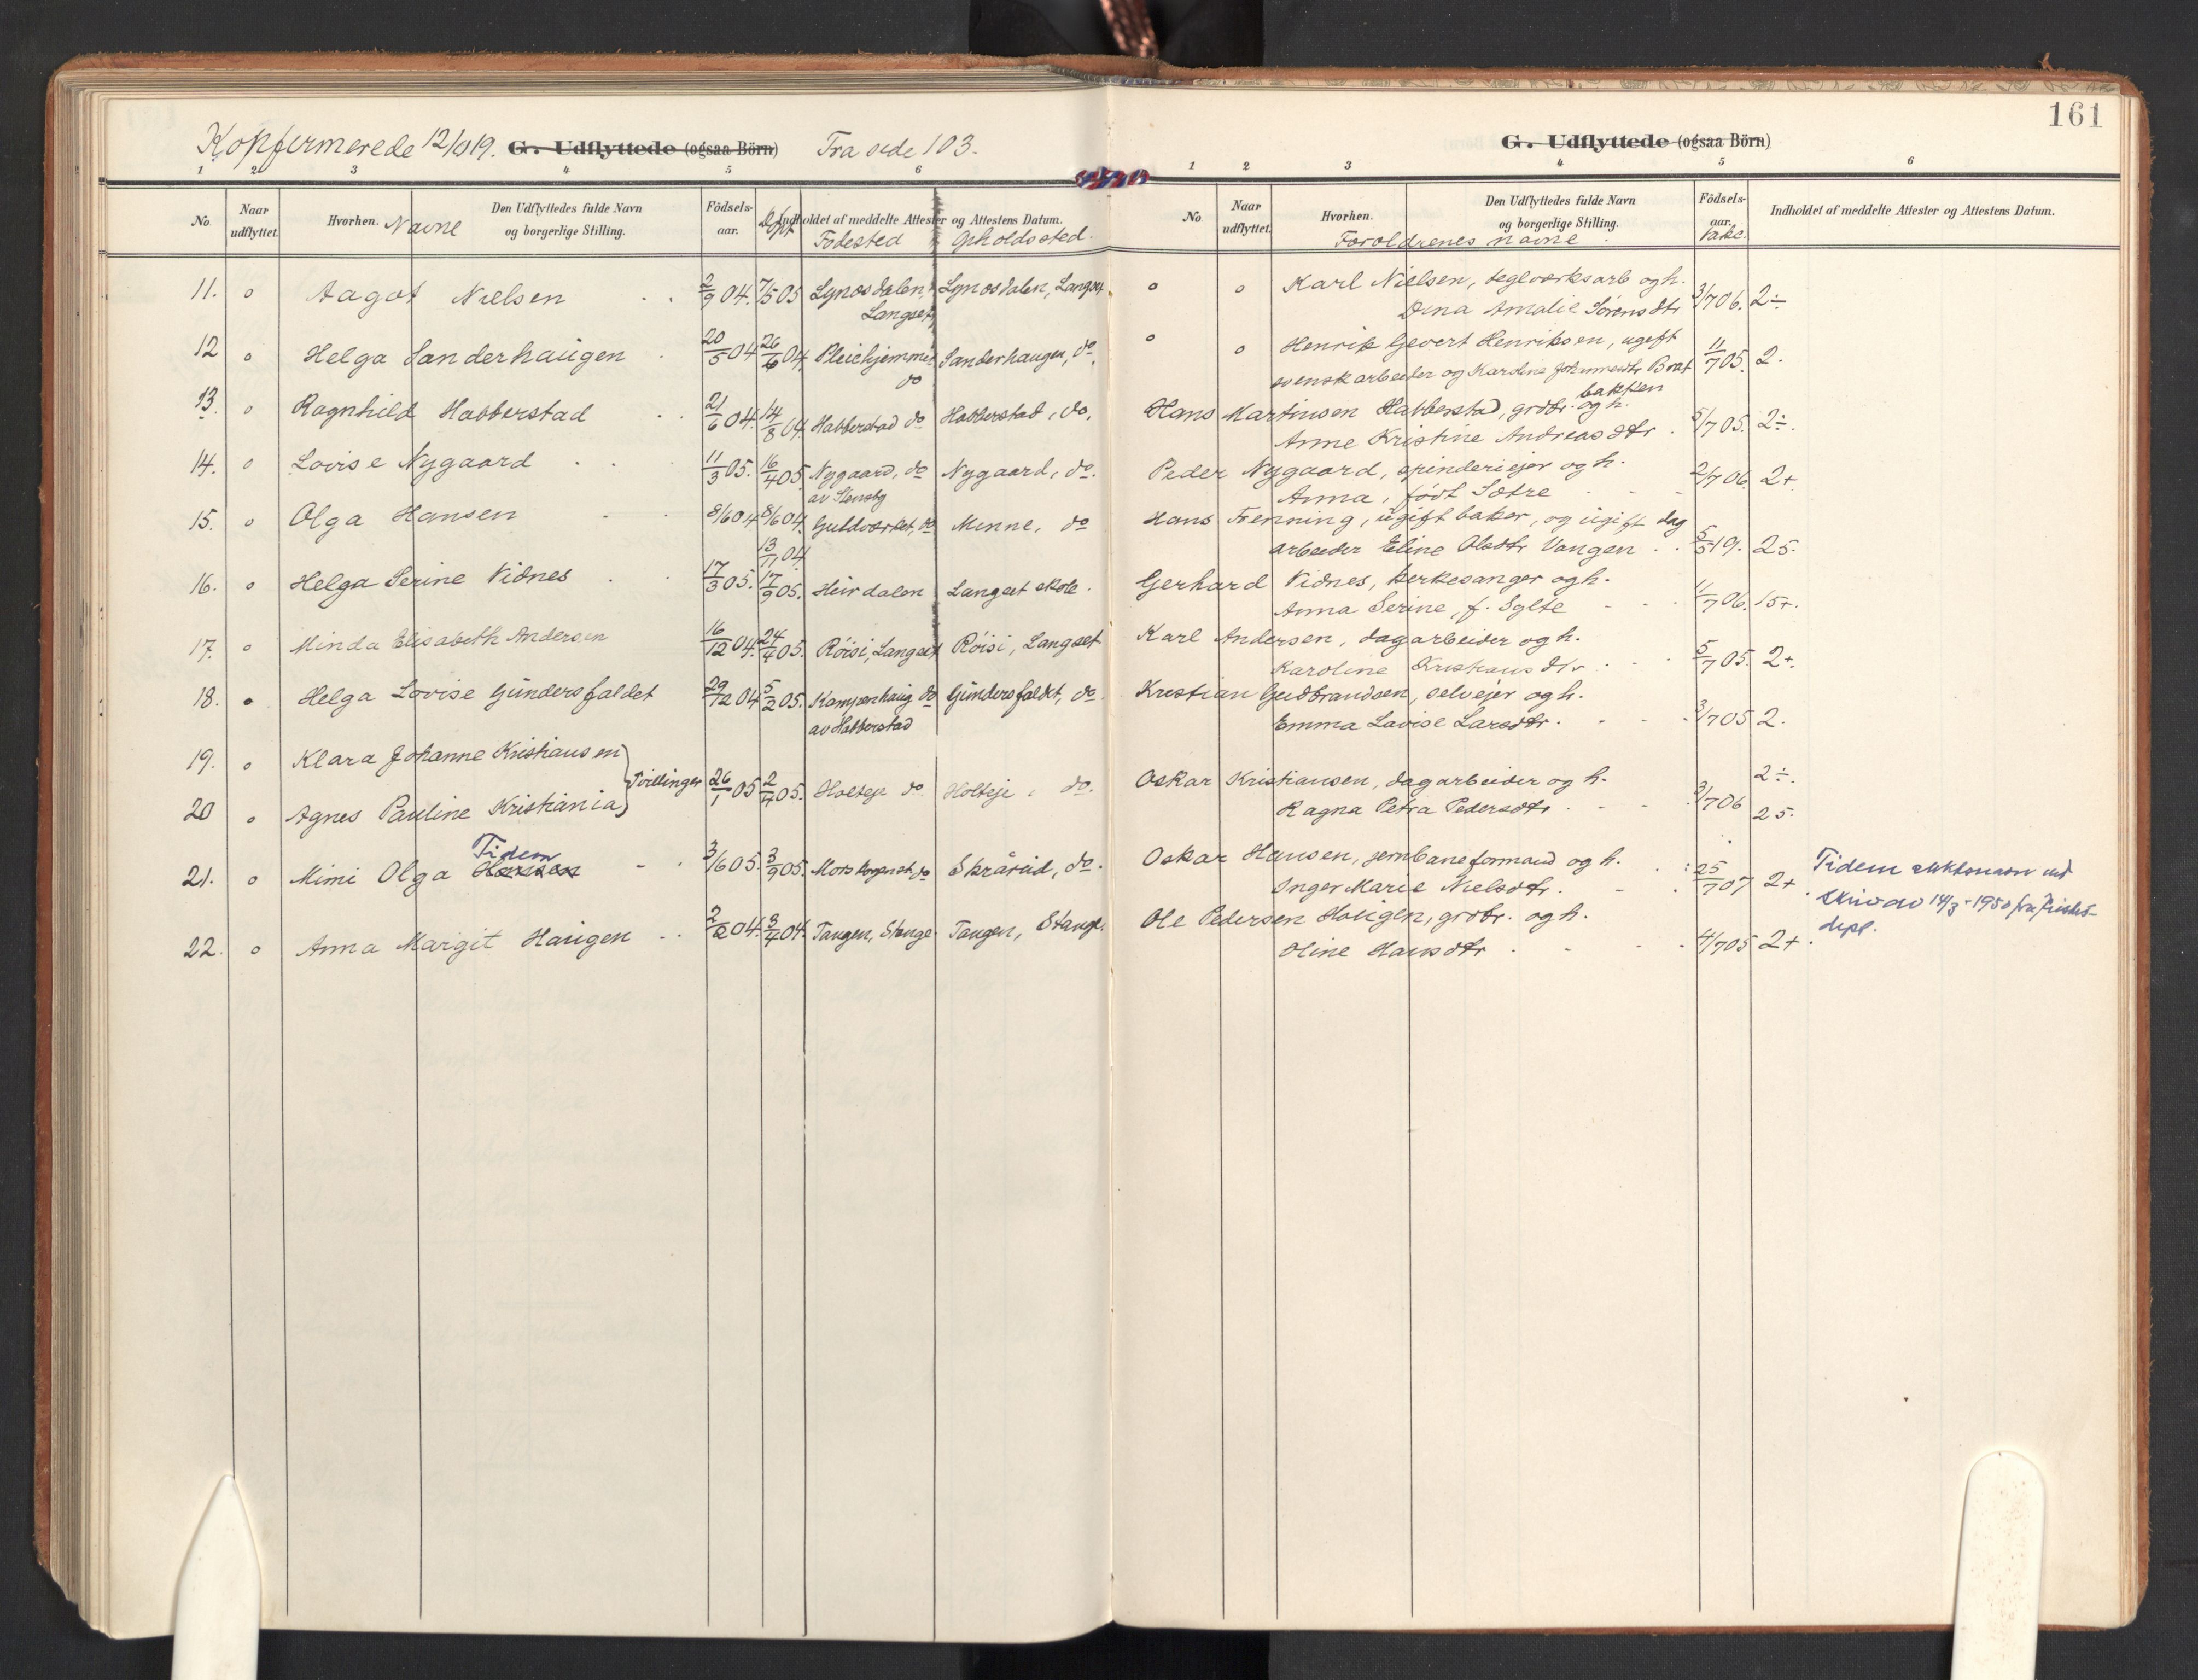 161
Kopfirmerede 12/10 19. G. Udflyttede (ogsaa Börn) Fra side 103.
1 2 3 4 5 6
No Naar udflyttet. Hvorhen. Navne Den Udflyttedes fulde Navn og borgerlige Stilling. Födsels-aar. Döpt Indholdet af meddelte Attester og Attestens Datum.
Fødested Opholdssted.
11. o Aagot Nielsen 2/9 04. 7/5 05 Lynosdalen, Langset Lynosdalen, Langset
12 o Helga Sanderhaugen 20/5 04 26/6 04. Pleiehjemmet do Sanderhaugen, do.
13. o Ragnhild Habberstad 21/6 04. 14/8 04. Habberstad do Habberstad, do.
14. o Lovise Nygaard 11/3 05. 16/4 05. Nygaard, do av Stensby Nygaard, do.
15. o Olga Hansen 8/6 04 8/6 04. 13/11 04 Guldverket, do Minne, do
16. o Helga Serine Vidnes 17/3 05. 17/9 05. Heirdalen Langset skole.
17. o Minda Elisabeth Andersen 16/12 04. 24/4 05. Röisi, Langset Röisi, Langset
18. o Helga Lovise Gundersfaldet 29/12 04 5/2 05. Kampenhaug do av Habberstad Gundersfaldet, do.
19. o Klara Johanne Kristiansen
Tvillinger 26/1 05 2/4 05. Holteje do. Holteje, do.
20 o Agnes Pauline Kristiania
21. o Mimi Olga Hansen Tidem 3/6 05. 3/9 05. do Skrårud, do.
22. o Anna Margit Haugen 2/2 04. 3/4 04. Tangen, Stange Tangen, Stange.
G. Udflyttede (ogsaa Börn)
1 2 3 4 5 6
No Naar udflyttet. Hvorhen. Den Udflyttedes fulde Navn og borgerlige Stilling. Födsels-aar. Vakc. Indholdet af meddelte Attester og Attestens Datum.
Foroldrenes navne.
o o Karl Nielsen, teglverksarb og h.
Dina Amalie Sørensdtr 3/7 06. 2÷
o o Henrik Gevert Henriksen, ugift
svensk arbeider og Karoline Johannesdtr Brat bakken 11/7 05. 2.
Hans Martinsen Habberstad, grdbr. og h.
Anne Kristine Andreasdtr. 5/7 05. 2÷.
Peder Nygaard, spinderiejer og h.
Anna, født Sætre 2/7 06. 2+.
Hans Frenning, ugift baker, og ugift dag
arbeider Eline Olsdtr Vangen 5/5 19. 25.
Gerhard Vidnes, kerkesanger og h.
Anna Serine, f. Sylte 11/7 06. 15+.
Karl Andersen, dagarbeider og h.
Karoline Kristiansdtr. 5/7 05. 2+.
Kristian Gudbrandsen, selvejer og h.
Emma Lovise Larsdtr. 3/7 05 2.
Oskar Kristiansen, dagarbeider og h. 2÷.
Ragna Petra Pedersdtr. 3/7 06 25.
Oskar Hansen, jernbaneformand og h.
Inger Marie Nielsdtr. 25/7 07 2+ Tidem
skriv av 14/3 - 1950 fra Justis-
dept.
Ole Pedersen Haugen, grdbr. og h.
Oline Hansdtr 4/7 05 2+.